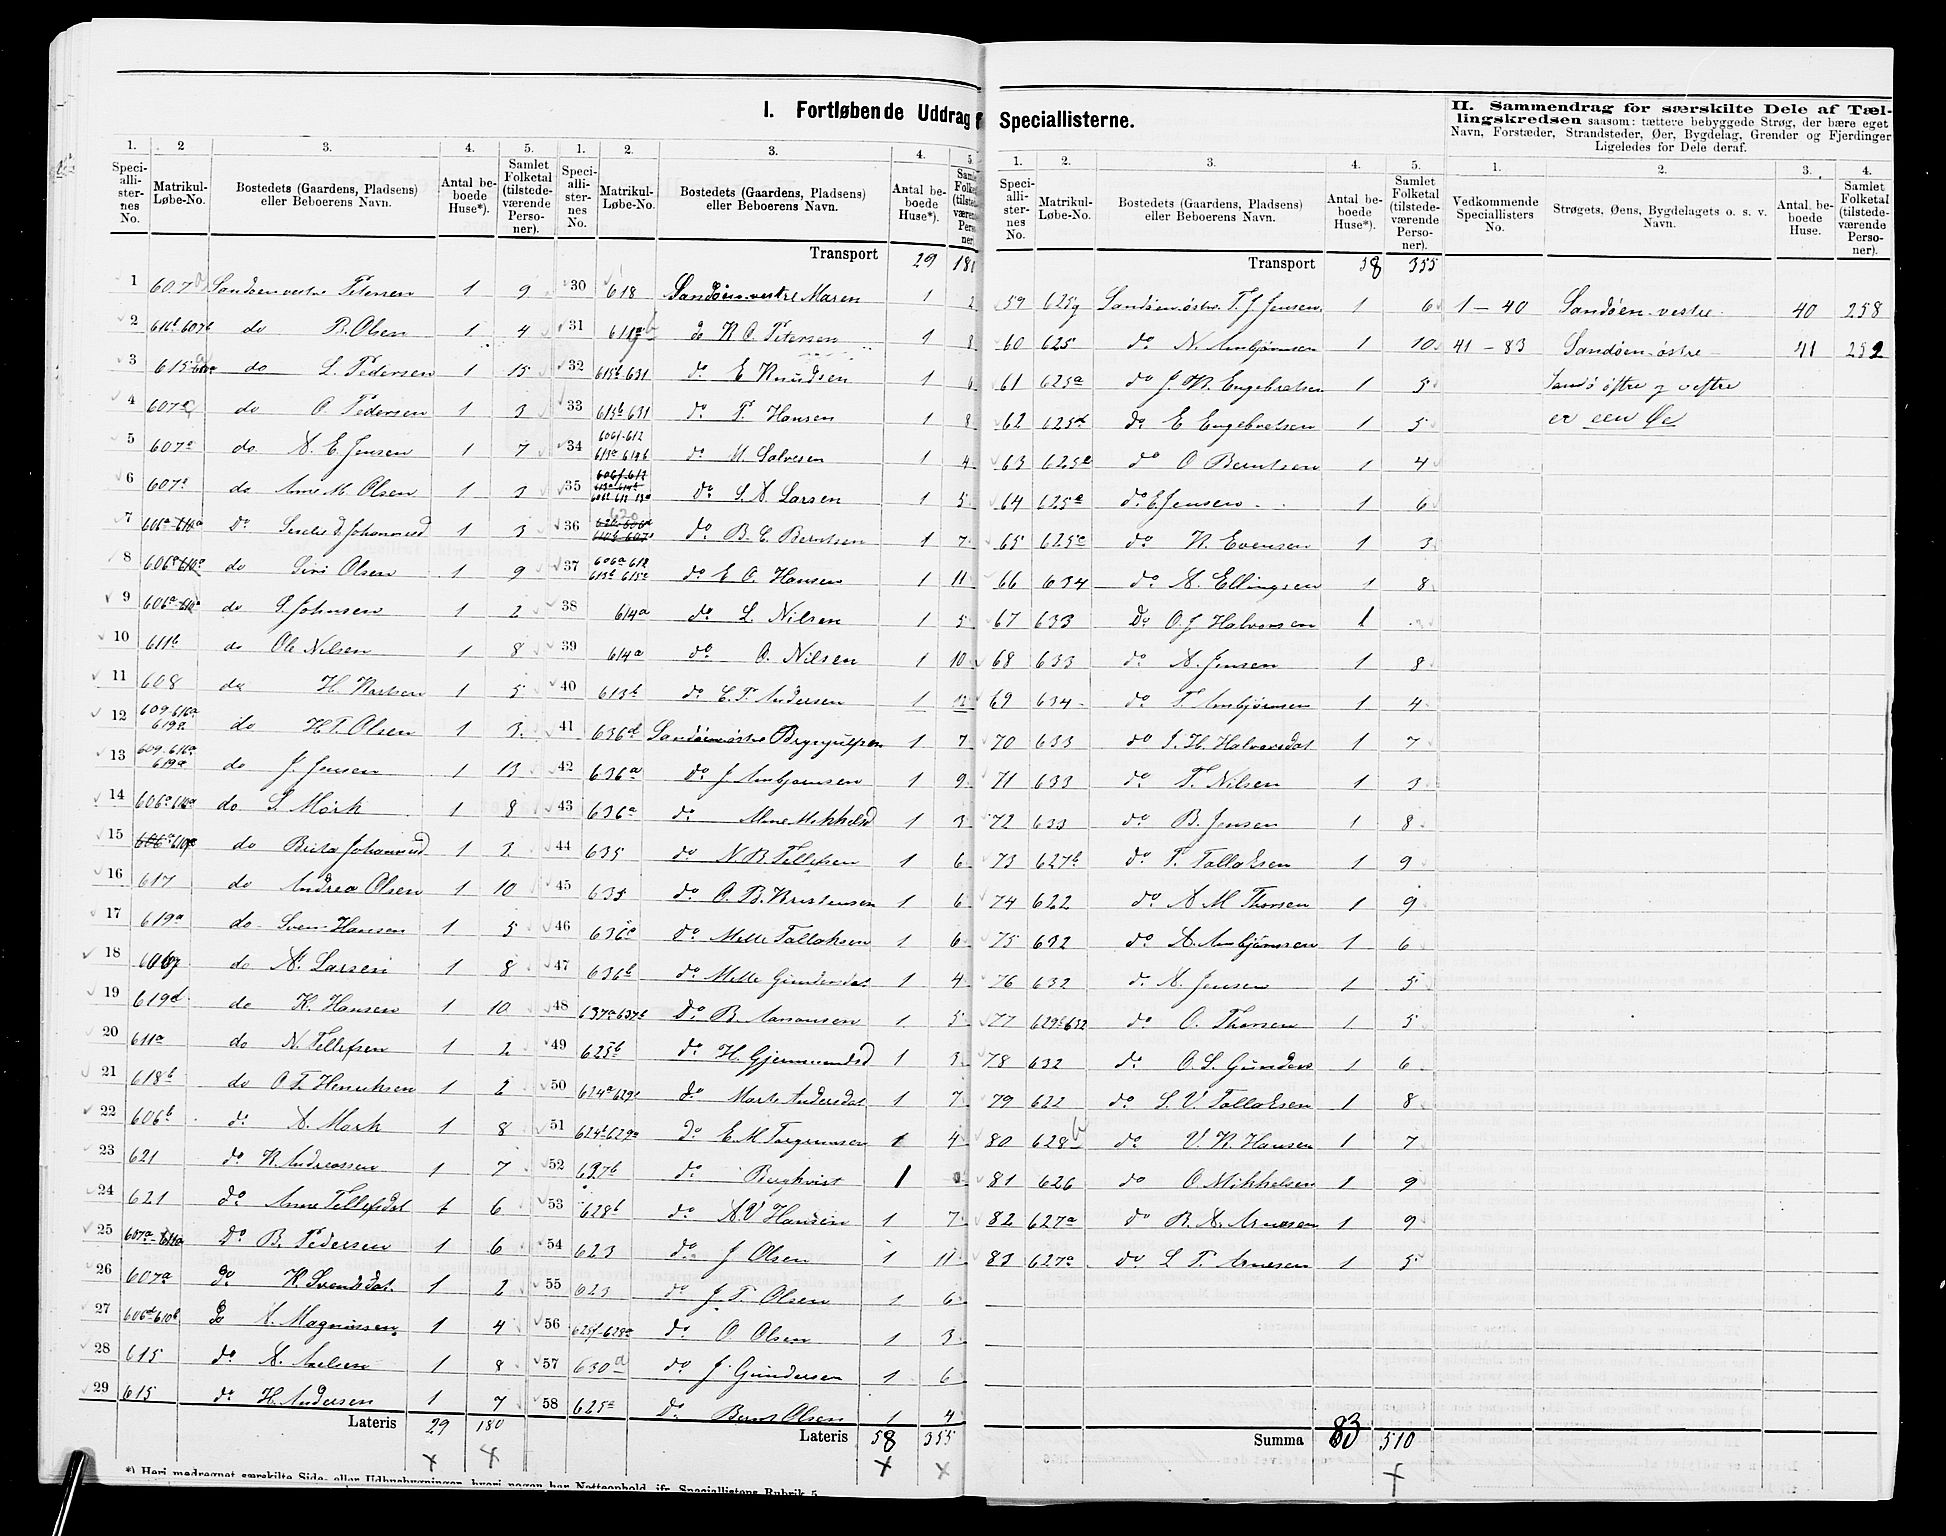 I. Fortløbende Uddrag
Speciallisterne.
II. Sammendrag for særskilte Dele af Tæl-
lingskredsen saasom: tættere bebyggede Strøg, der bære eget
Navn, Forstæder, Strandsteder, Øer, Bygdelag, Grender og Fjerdinger
Ligeledes for Dele deraf.
1. 2 3. 4. 5.
Speciallisternes No. Matrikul-Løbe-No. Bostedets (Gaardens, Pladsens) eller Beboerens Navn. Antal beboede Huse*). Samlet Folketal (tilstedeværende Personer).
1 607 Sandøen vestre Petersen 1 9
2 616b 607b do B. Olsen 1 4
3 615 do L. Pedersen 1 15
4 607a do O Pedersen 1 3
5 607a do A. E. Jensen 1 7
6 607a do Anne M. Olsen 1 3
7 606a 610a Do 1 3
8 606a 610a do Siri Olsen 1 9
9 606a 610a do P. Johnsen 1 2
10 611b do Ole Nilsen 1 8
11 608 do H 1 5
12 609-616a 619a do H T. Olsen 1 3
13 609-616a 619a do J. Jensen 1 13
14 606a 610a do S. Mörk 1 8
15 606a 610a do Berta Johannesd 1 3
16 617 do Andrea Olsen 1 10
17 619a do Sven Hansen 1 5
18 606 do N. Larsen 1 8
19 619d do K. Hansen 1 10
20 611a do N. Tellefsen 1 2
21 618b do O T. Henriksen 1 2
22 606b do A. Mørk 1 8
23 621 do K Andreassen 1 7
24 621 do Anne Tellefsdat 1 6
25 607a 611a Do B. Pedersen 1 6
26 607a do K. Svendsdat 1 2
27 606d-610b do A. Magnussen 1 4
28 615 do A. Nielsen 1 8
29 615 do H. Andersen 1 7
Lateris 29 180
1. 2. 3. 4. 5.
Transport 29 180
30 618 Sandøen vestre Maren 1 2
31 611a do K O. Petersen 1 8
32 615b 631 do E Knudsen 1 6
33 613b 631 do T. Hansen 1 8
34 606f-612 613a 614b do M. Salvesen 1 4
35 do S. A. Larsen 1 5
36 620 do B. C. Berntsen 1 7
37 606a 612 613b 615a do E O. Hansen 1 11
38 614a do L. Nilsen 1 5
39 614a do O. Nilsen 1 10
40 613b do E. T. Andersen 1 12
41 636d Sandøen østre Brynjulfsen 1 7
42 636a do J Anbjørnsen 1 9
43 636a do Anne Mikkelsd 1 3
44 635 do N B Tellefsen 1 6
45 635 do O. B. Kristensen 1 6
46 636c do Mette Tallaksen 1 6
47 636b do Mette Gundersdat 1 4
48 637a 637b Do B. Aanonsen 1 5
49 625b do H. Gjermundsd 1 3
50 624a-629c do Marte Andersdat 1 7
51 624b-629a do E M Torgrimsen 1 4
52 637b do Berghvist 1
53 628b do A V Hansen 1 7
54 623 do J Olsen 1 11
55 623 do J. T. Olsen 1 6
56 625f-628a do O Olsen 1 3
57 630a do J Gundersen 1 6
58 625a Do Bernt Olsen 1 4
Lateris 58 355
1. 2. 3. 4. 5.
Speciallisternes No. Matrikul-Løbe-No. Bostedets (Gaardens, Pladsens) eller Beboerens Navn. Antal beboede Huse*). Samlet Folketal (tilstedeværende Personer).
Transport 58 355
59 625g Sandøen østre T. J. Jensen 1 6
60 625 do N. Anbjørnsen 1 10
61 625a do J. K. Engebretsen 1 5
62 625d do E Engebretsen 1 5
63 625a do O Berntsen 1 4
64 625e do E Jensen 1 6
65 625a do K Evensen 1 3
66 634 do A. Ellingsen 1 8
67 633 Do O. J Halvorsen 1
68 633 do A. Jensen 1 8
69 634 do T Anbjørnsen 1 4
70 633 do I. H. Halvorsdat 1 7
71 633 do T. Nilsen 1 3
72 633 do B. Jensen 1 8
73 627b do T. Tallaksen 1 9
74 622 do A M Thorsen 1 9
75 632 do A. Anbjørnsen 1 6
76 632 do A. Jensen 1 5
77 629b 632 do O. Thorsen 1 5
78 632 do O. S. Gunders 1 6
79 622 do S. V. Tallaksen 1 8
80 628b do V. K Hansen 1 7
81 626 do O Mikkelsen 1 9
82 627a do B. A. Arnesen 1 9
83 627a do L T. Arnesen 1 5
Summa 83 510
1. 2. 3. 4.
Vedkommende Speciallisters No. Strøgets, Øens, Bygdelagets o. s. v. Navn. Antal beboede Huse. Samlet Folketal (tilstedeværende Personer).
1 – 40 Sandöen vestre 40 258
41 – 83 Sandöen østre 41 252
Sandø östre og vestre
er een Øe
*) Heri medregnet særskilte Side- eller Udhusbygninger, hvori nogen har Natteophold, jfr. Speciallistens Rubrik 5.